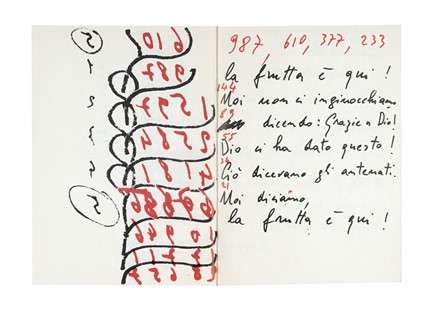 5
1
2
3
4
5
610
987
1597
2584
4181
987, 610, 377, 233
la frutta è qui!
144
Noi non ci inginocchiamo
89
dicendo: Grazie a Dio!
55
Dio ci ha dato questo!
34
Ciò dicevano gli antenati.
21
Noi diciamo,
la frutta è qui!